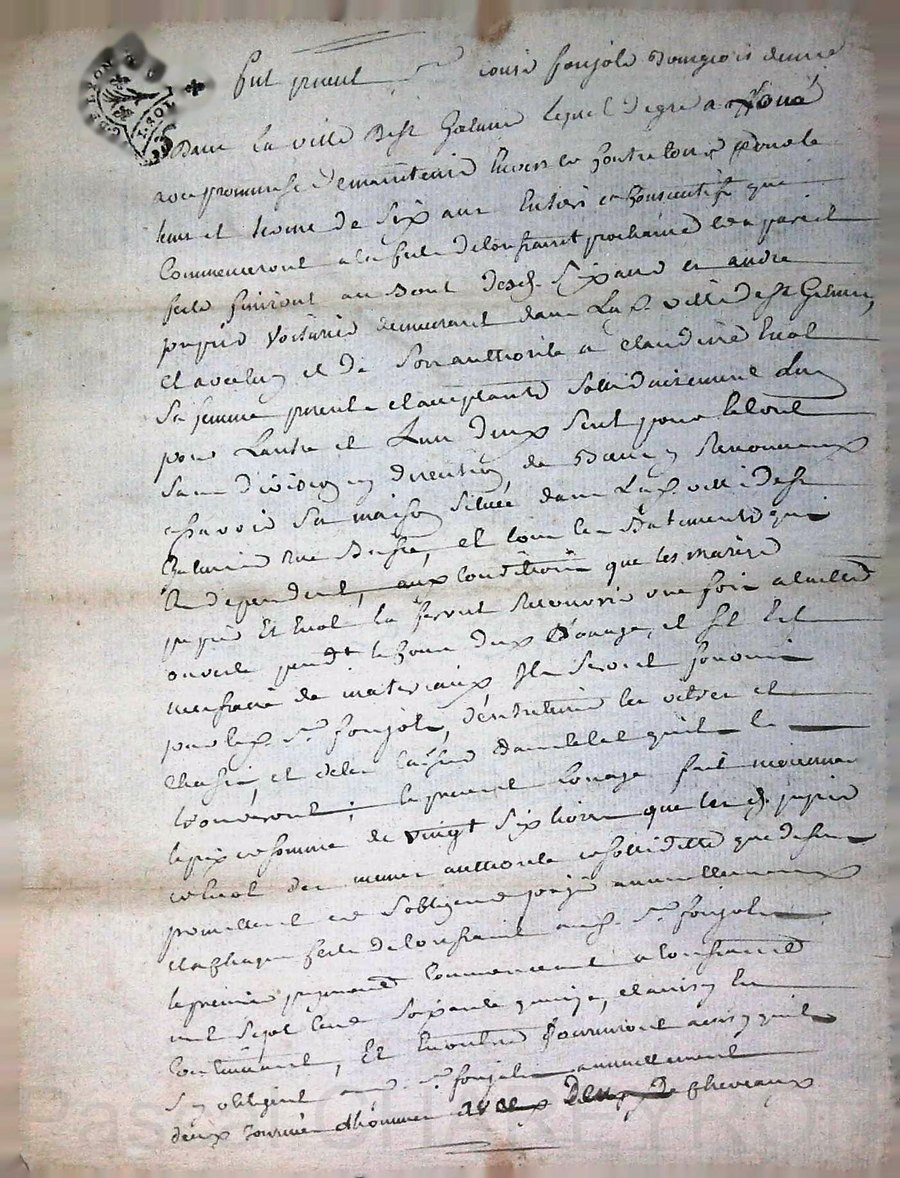 GEN DE LYON
1 SOL
fut present Sr Louis fonjols Bourgeois demeu
Dans la ville de St Galmier lequel degré a Loué
avec promesse de maintenir envers et contre tous pour le
tems et terme de Six ans Entiers et consecutifs qui
Commenceront a la feste de la toussaint prochaine et a pareil
feste finiront au Bout desd. Six ans a andré
papier Voiturier demeurant dans La d. ville de St Galmier,
et avec luy et de Son authorité a claudine
Sa femme presente et acceptante Sollidairement L'un
pour Lautre et Lun deux Seul pour le tout
Sans division ny discution de Biens y Renonceant
Savoir Sa maison Située dans La d. ville de St
Galmier Rue Basse, et tous les Batiments qui
En dependent, aux Conditions que les mariés
papier Et la feront Recouvrir une fois a taille
ouverte pendt le Cours du d. Louage, et Sil Est
necessaire de materiaux Ils Seront fournis
par le d. Sr fonjols, d'entretenir les vitres et
Chassis, et de les laisser dans letat quils les
trouveront; le present Louage fait moienant
le prix et somme de vingt Six livres que les d. papier
et de meme authorité et sollidité que dessus
promettent et S'obligent payer annuellement
et a chaque feste de la toussaint au d. Sr fonjols
le premier payement Commencera a la toussaint
mil Sept Cent Soixante quinze, et ainsy En
Continuant, Et En outre fourniront ainsy quils
Sy obligent au d. Sr fonjols annuellement
deux Journées d'hommes avec deux de chevaux